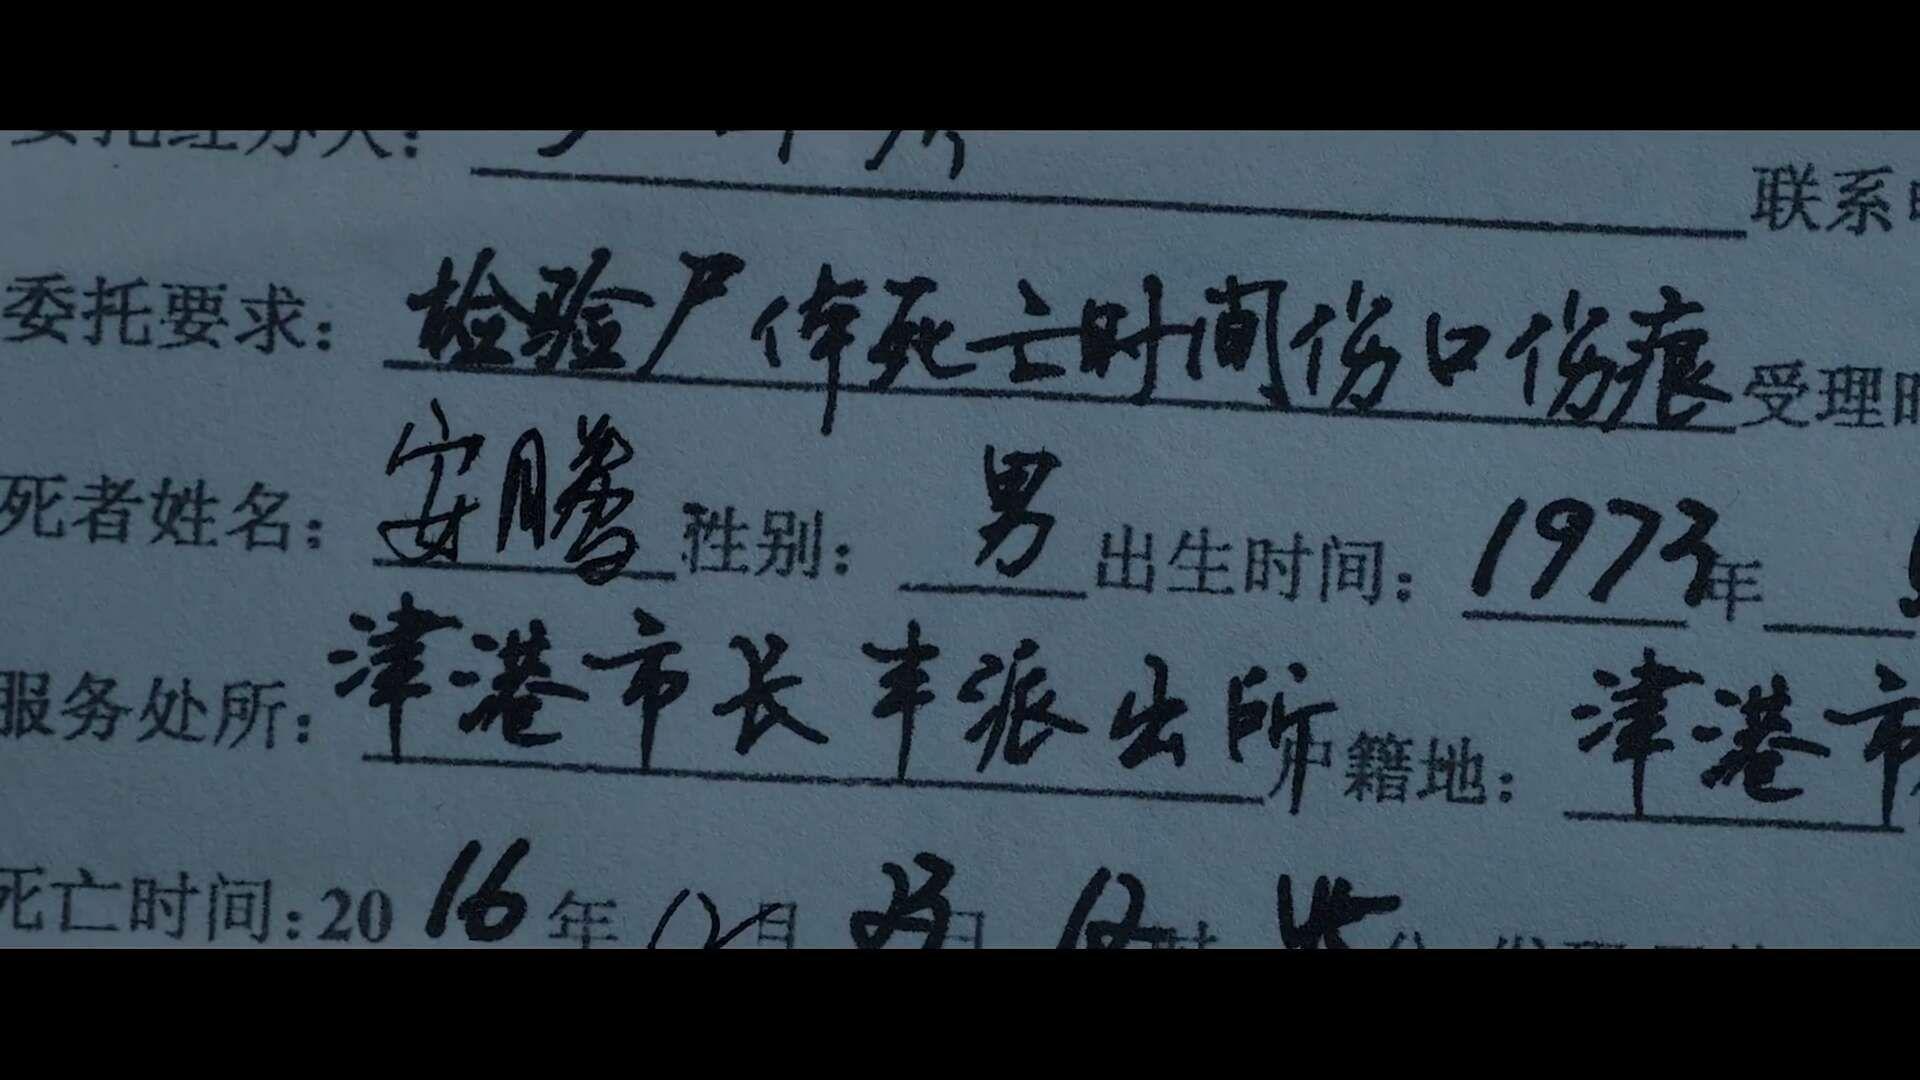 委托经办人：
联系
委托要求：检验尸体死亡时间伤口伤痕 受理时
死者姓名：安腾 性别：男 出生时间：1973年
服务处所：津港市长丰派出所 户籍地：津港市
死亡时间：2016年12月23日12时45分